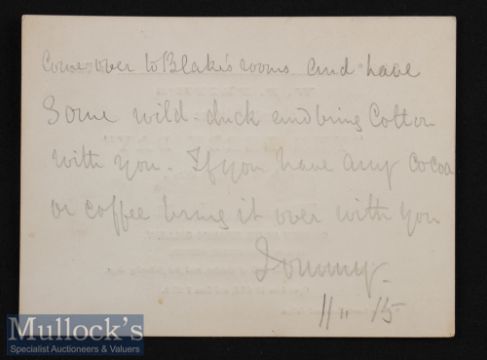 Come over to Blake's rooms and have
Some wild-duck and bring Cotton
with you. If you have any cocoa
or coffee bring it over with you
Tommy.
11 " 15
Mullock's
Specialist Auctioneers & Valuers